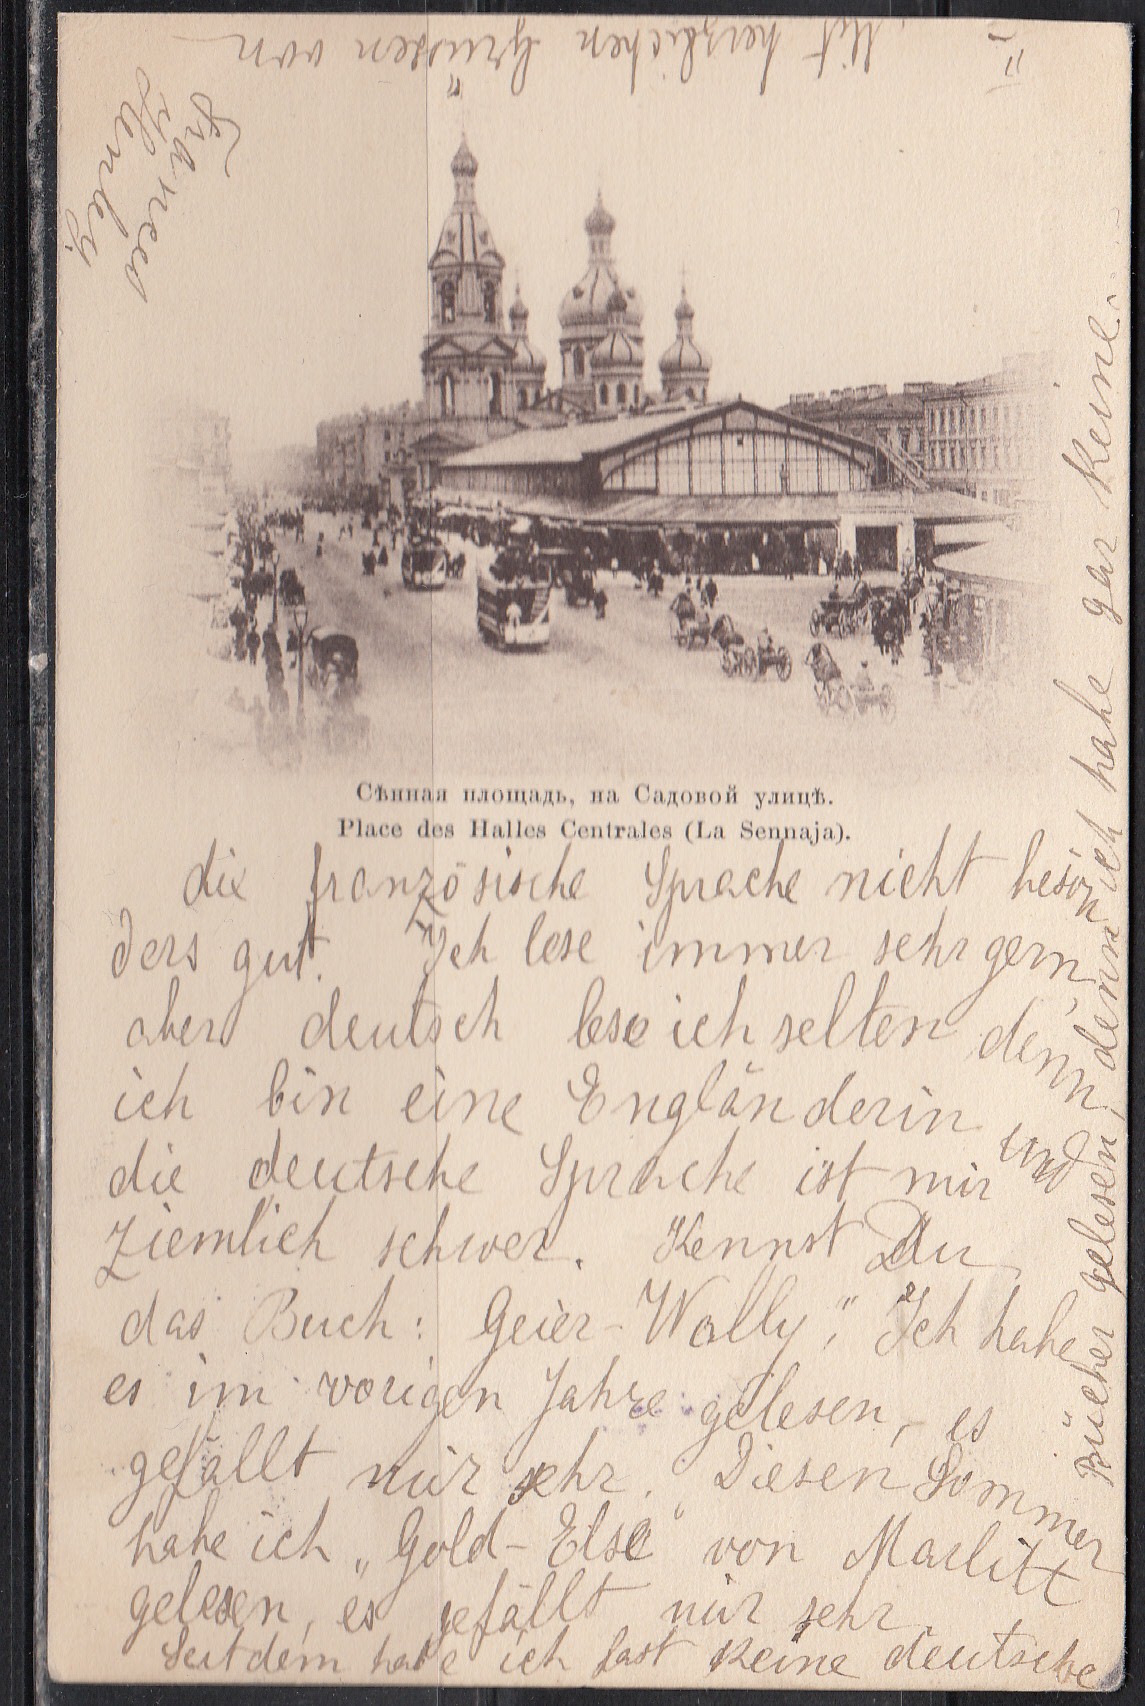 II
Сѣнная площадь, на Садовой улицѣ.
Place des Halles Centrales (La Sennaja).
die französische Sprache nicht beson
ders gut. Ich lese immer sehr gern,
aber deutsch lese ich selten, denn
ich bin eine Engländerin und
die deutsche Sprache ist mir
ziemlich schwer. Kennst Du
das Buch: "Geier-Wally," Ich habe
es im vorigen Jahre gelesen, es
gefällt mir sehr. Diesen Sommer
habe ich „Gold-Else" von Marlitt
gelesen, es gefällt mir sehr
Seitdem habe ich fast keine deutsche
Bücher gelesen, denn ich habe gar keine.
Mit herzlichen Grussen von
Frances
Henley